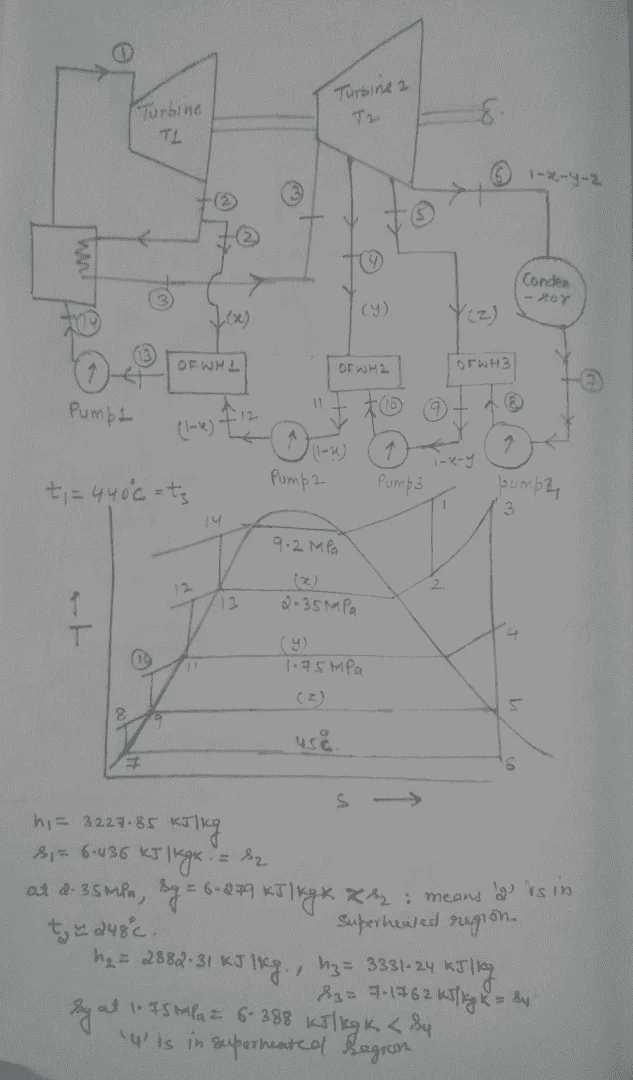 ①
Turbine
T1
Turbine 2
T2
②
②
③
③
④
⑤
⑥ 1-x-y-z
Conden
-sor
(x)
(y)
(z)
14
13
OFWH1
OFWH2
OFWH3
⑦
Pump1
(1-x)
12
11
⑩
⑨
⑧
(1-x)
1-x-y
Pump2
Pump3
t₁= 440°C = t₃
14
1
3
9.2 MPa
12
(x)
13
2.35MPa
2
↑
T
(y)
4
11
1.75 MPa
(z)
8
9
5
45°C.
7
6
S →
h₁= 3227.85 KJ/kg
s₁= 6.436 KJ/kgk. = s₂
at 2.35MPa, sg = 6.279 KJ/kgk s₂ : means '2' is in
superheated region.
t₂ ≃ 248°C.
h₂ = 2882.31 KJ/kg., h₃= 3331.24 KJ/kg
s₃= 7.1762 KJ/kgk = s₄
sg at 1.75MPa = 6.388 KJ/kgk < s₄
'4' is in superheated region